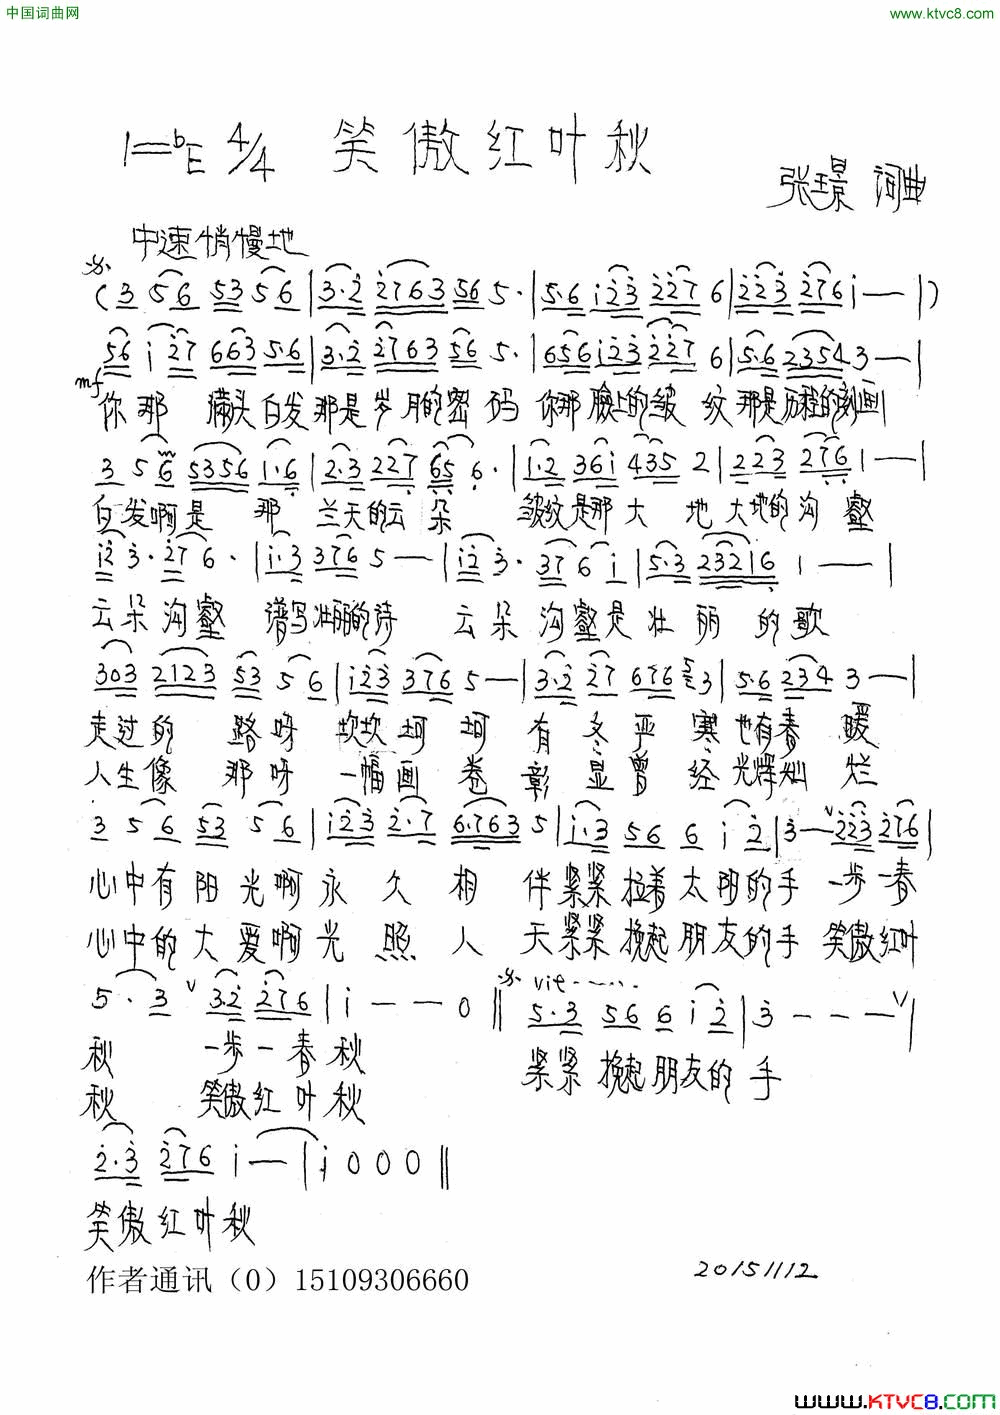 中国词曲网
www.ktvc8.com
1=bE 4/4 笑傲红叶秋
张璟 词曲
中速悄慢地
(3 56 53 56 | 3·2 2763 56 5· | 5·6 i23 227 6 | 223 276 i — — | )
56 i 27 663 5·6 | 3·2 2763 56 5· | 656 i23 227 6 | 5·6 2354 3 — — |
mf
你那 满头白发那是岁月的密码 你那脸上的皱纹那是历程的刻画
3 5 6 5356 1·6 | 2·3 227 65 6· | 1·2 36i 435 2 | 223 276 1 — — |
白发啊是 那 兰天的云朵 皱纹是那大 地大地的沟壑
i2 3· 27 6· | i·3 376 5 — — | i2 3· 37 6 i | 5·3 23216 1 — — |
云朵沟壑 谱写壮丽的诗 云朵沟壑是壮丽的歌
303 2123 53 5 6 | i23 376 5 — — | 3·2 27 676 5 3 | 5·6 234 3 — — |
走过的 路呀 坎坎坷坷 有冬严寒也有春暖
人生像 那呀 一幅画卷 彰显曾经光辉灿烂
3 5 6 53 5 6 | i23 2·7 6·763 5 | i·3 56 6 i 2 | 3 — v 223 276 |
心中有阳光啊永久相 伴紧紧拉着太阳的手 一步一春
心中的大爱啊光照人 天紧紧挽起朋友的手 笑傲红叶
5·3 v 3·2 276 | i — — — 0 ‖ vit...... 5·3 56 6 i 2 | 3 — — — v |
秋 一步一春秋 紧紧挽起朋友的手
秋 笑傲红叶秋
2·3 276 i — | i 0 0 0 ‖
笑傲红叶秋
作者通讯（0）15109306660
20151112
www.KTVC8.com